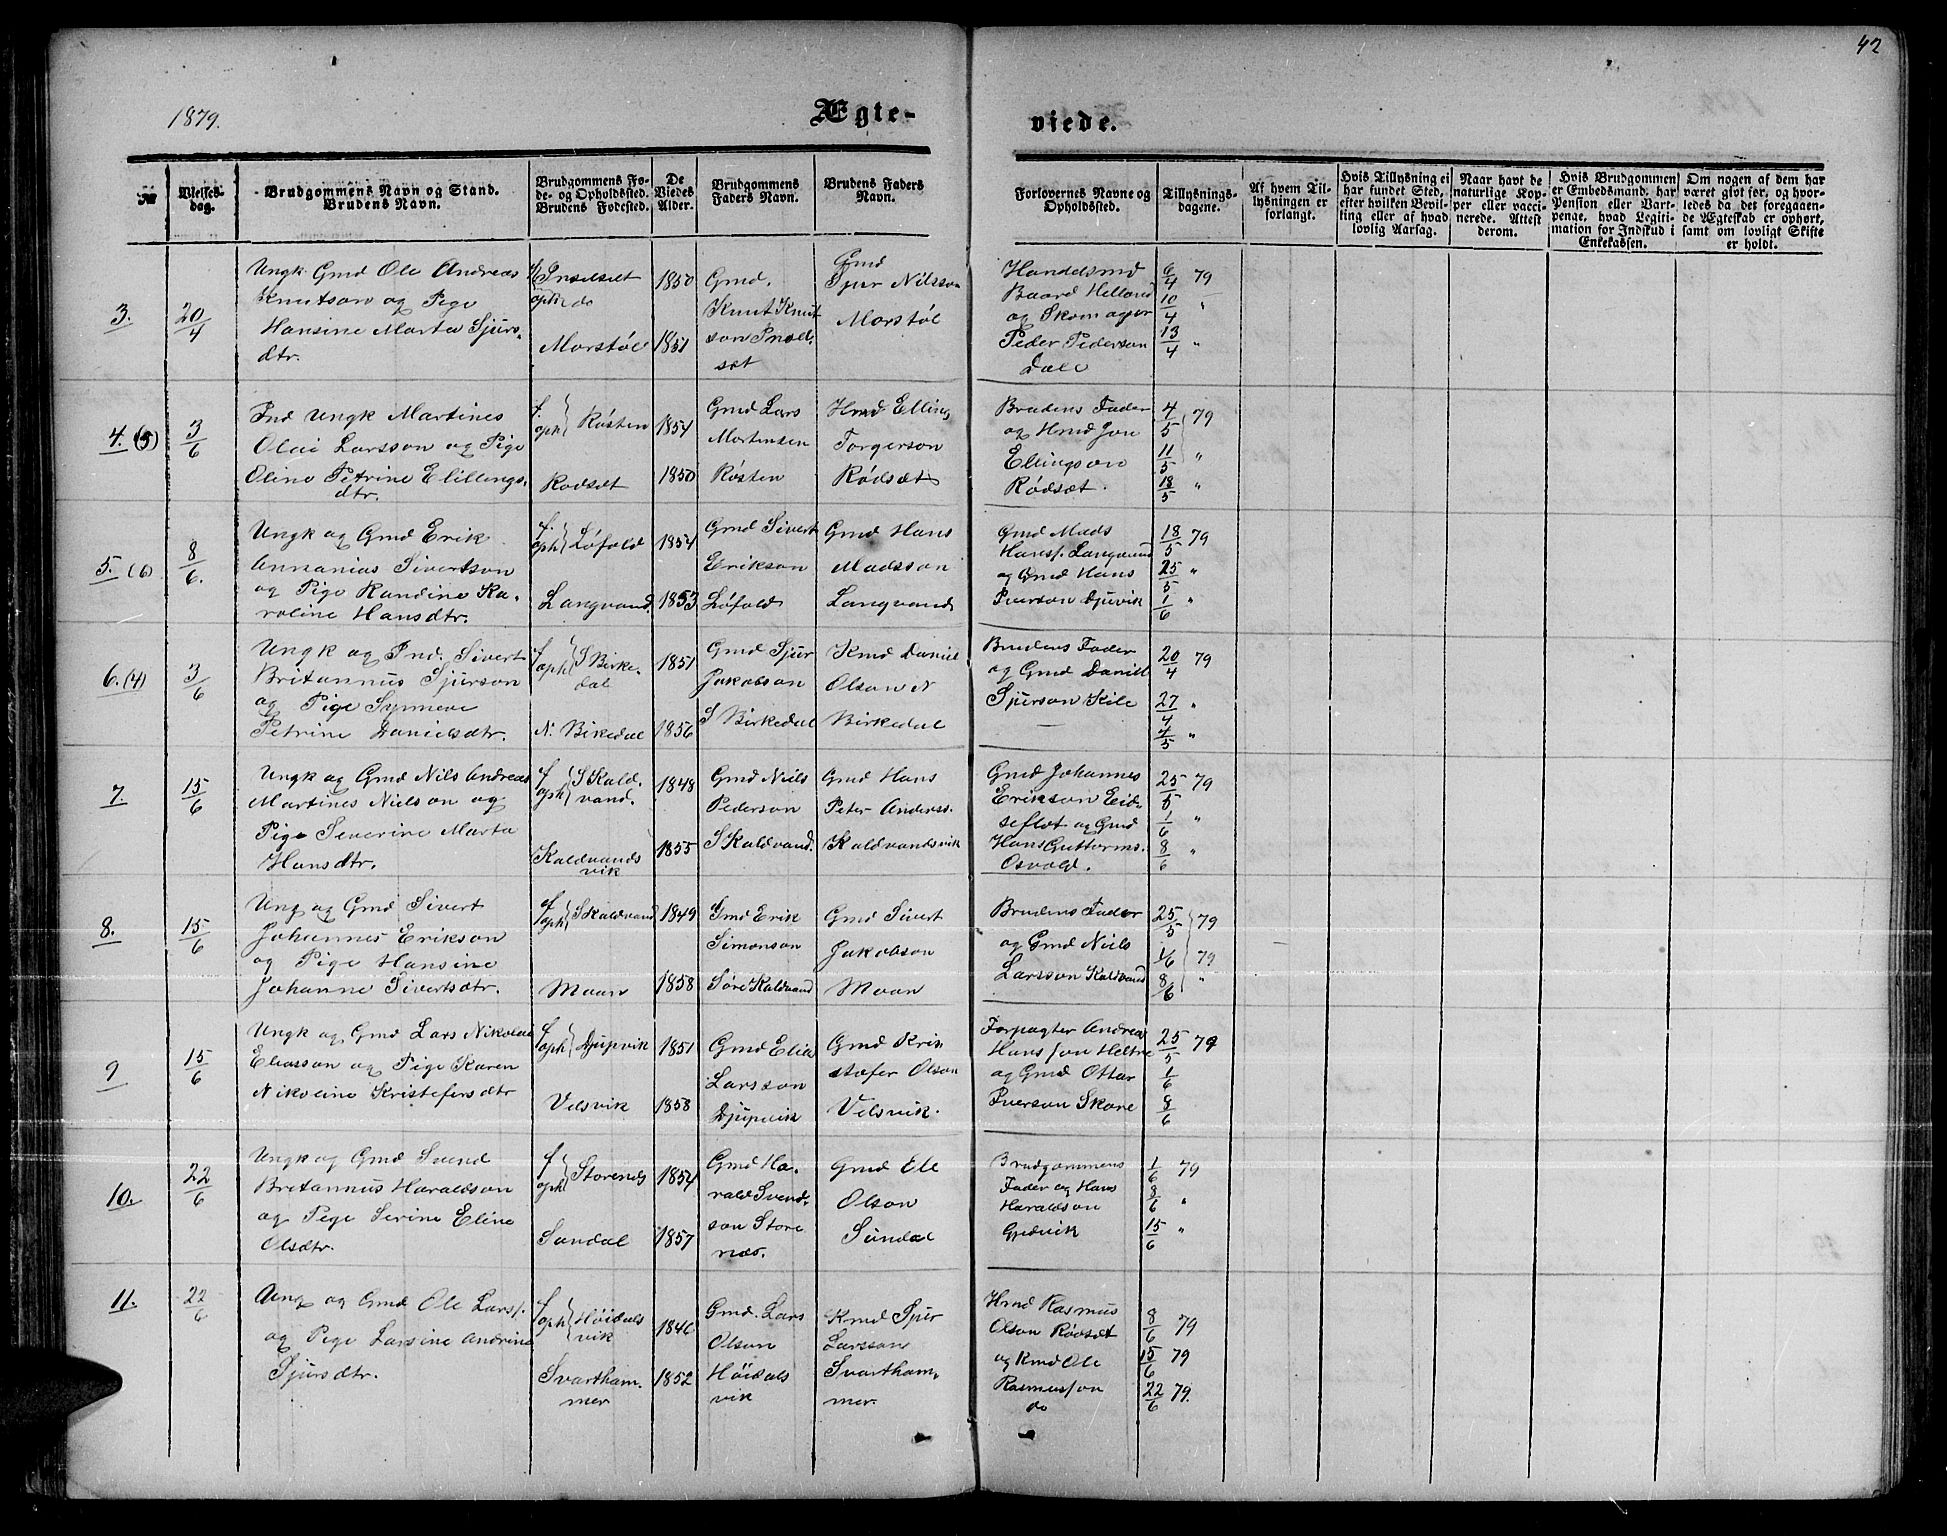 42
1879.
Ægte-
viede.
№
Vielses-
dag.
Brudgommens Navn og Stand.
Brudens Navn.
Brudgommens Fø-
de- og Opholdssted.
Brudens Fødested.
De
Viedes
Alder.
Brudgommens
Faders Navn.
Brudens Faders
Navn.
Forlovernes Navne og
Opholdssted.
Tillysnings-
dagene.
Af hvem Til-
lysningen er
forlangt.
Hvis Tillysning ei
har fundet Sted,
efter hvilken Bevil-
ling eller af hvad
lovlig Aarsag.
Naar havt de
naturlige Kop-
per eller vacci-
nerede. Attest
derom.
Hvis Brudgommen
er Embedsmand, har
Pension eller Vart-
penge, hvad Legiti-
mation for Indskud i
Enkekassen.
Om nogen af dem har
været givt før, og hvor-
ledes da det foregaaen-
de Ægteskab er ophørt,
samt om lovligt Skifte
er holdt.
3.
20/4
Ungk Gmd Ole Andreas
Knutson og Pige
Hansine Marta Sjurs-
dtr.
oph do
Morstøl
1850
1851
Gmd.
Knut Knut
son
sæt
Gmd
Sjur Nilsson
Morstøl
Handelsmd
Baard Helland
og Skomager
Peder Pederson
Dale
6/4 79
10/4 "
13/4 "
4. (5)
3/6
Ind Ungk Martines
Olai Larsson og Pige
Oline Petrine Elillings-
dtr.
f. oph Røsten
Rødsæt
1854
1850
Gmd Lars
Mortensen
Røsten
Hmd Elling
Torgerson
Rødsæt
Brudens Fader
og Hmd Jon
Ellingson
Rødsæt.
4/5 79
11/5 "
18/5 "
5. (6)
8/6.
Ungk og Gmd Erik
Annanias Sivertson
og Pige Randine Ka-
roline Hansdtr.
f. oph Løfold
Langvand.
1854
1853
Gmd Sivert
Erikson
Løfold
Gmd Hans
Madsson
Langvand
Gmd Mads
Hanss. Langvand
og Gmd Hans
Iverson Djuvik
18/5 79
25/5 "
1/6 "
6. (4)
3/6
Ungk og Ind. Sivert
Britannus Sjurson
og Pige Synneve
Petrine Danielsdtr.
f oph S Birke-
dal
N. Birkedal
1851
1856
Gmd Sjur
Jakobson
S Birkedal
Kmd Daniel
Olson N
Birkedal
Brudens Fader
og Gmd Daniel
Sjurson Kile
20/4 79
27/4 "
4/5 "
7.
15/6
Ungk og Gmd Nils Andreas
Martines Nielson og
Pige Severine Marta
Hansdtr.
f oph S Kald-
vand.
Kaldvands
vik
1848
1855
Gmd Niels
Pederson
S Kaldvand.
Gmd Hans
Peter Anderss.
Kaldvandsvik
Gmd Johannes
Erikson Eid-
seflot og Gmd
Hans Guttorms.
Osvold.
25/5 79
1/6 "
8/6 "
8.
15/6
Ung og Gmd Sivert
Johannes Erikson
og Pige Hansine
Johanne Sivertsdtr.
f oph S Kaldvand
Moan
1849
1858
Gmd Erik
Simonson
Søre Kaldvand
Gmd Sivert
Jakobson
Moan
Brudens Fader
og Gmd Niels
Larsson Kaldvand
25/5 79
1/6 79
8/6 "
9
15/6
Ungk og Gmd Lars Nikolai
Eliasson og Pige Karen
Nikoline Kristofersdtr
f oph Djupvik
Velsvik
1851
1858
Gmd Elias
Larsson
Djupvik
Gmd Kris
stofer Olson
Velsvik.
Forpagter Andreas
Hansson Heltre
og Gmd Ottar
Iverson Skore
25/5 79
1/6
8/6
10.
22/6
Ungk og Gmd Svend
Britannus Haraldson
og Pige Serine Eline
Olsdtr.
f oph Storenes
Sundal
1854
1857
Gmd Ha-
rald Svend-
son Store
næs.
Gmd Ole
Olson
Sundal
Brudgommens
Fader og Hans
Haraldson
Gjedvik
1/6 79
8/6 "
15/6 "
11.
22/6
Ung og Gmd Ole Larss.
og Pige Larsine Andrine
Sjursdtr.
f oph Høidals
vik
Svartham-
mer
1846
1852
Gmd. Lars
Olson
Høidals
vik
Kmd Sjur
Larsson
Svartham-
mer.
Hmd Rasmus
Olson Rødsæt
og Kmd Ole
Rasmusson
do
8/6 79
15/6 79
22/6 79.